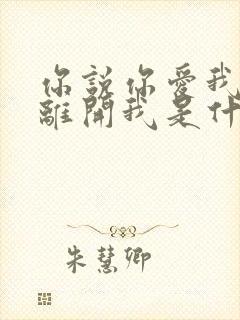 你說你愛我
離開我是什
朱慧卿